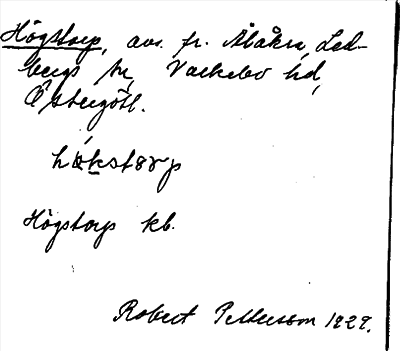 Högstorp, avs. fr. Åbåkra, Led-
bergs sn, Vackebo hd,
Östergötl.
hökstørp
Högstorp kb.
Robert Pettersson 1929.